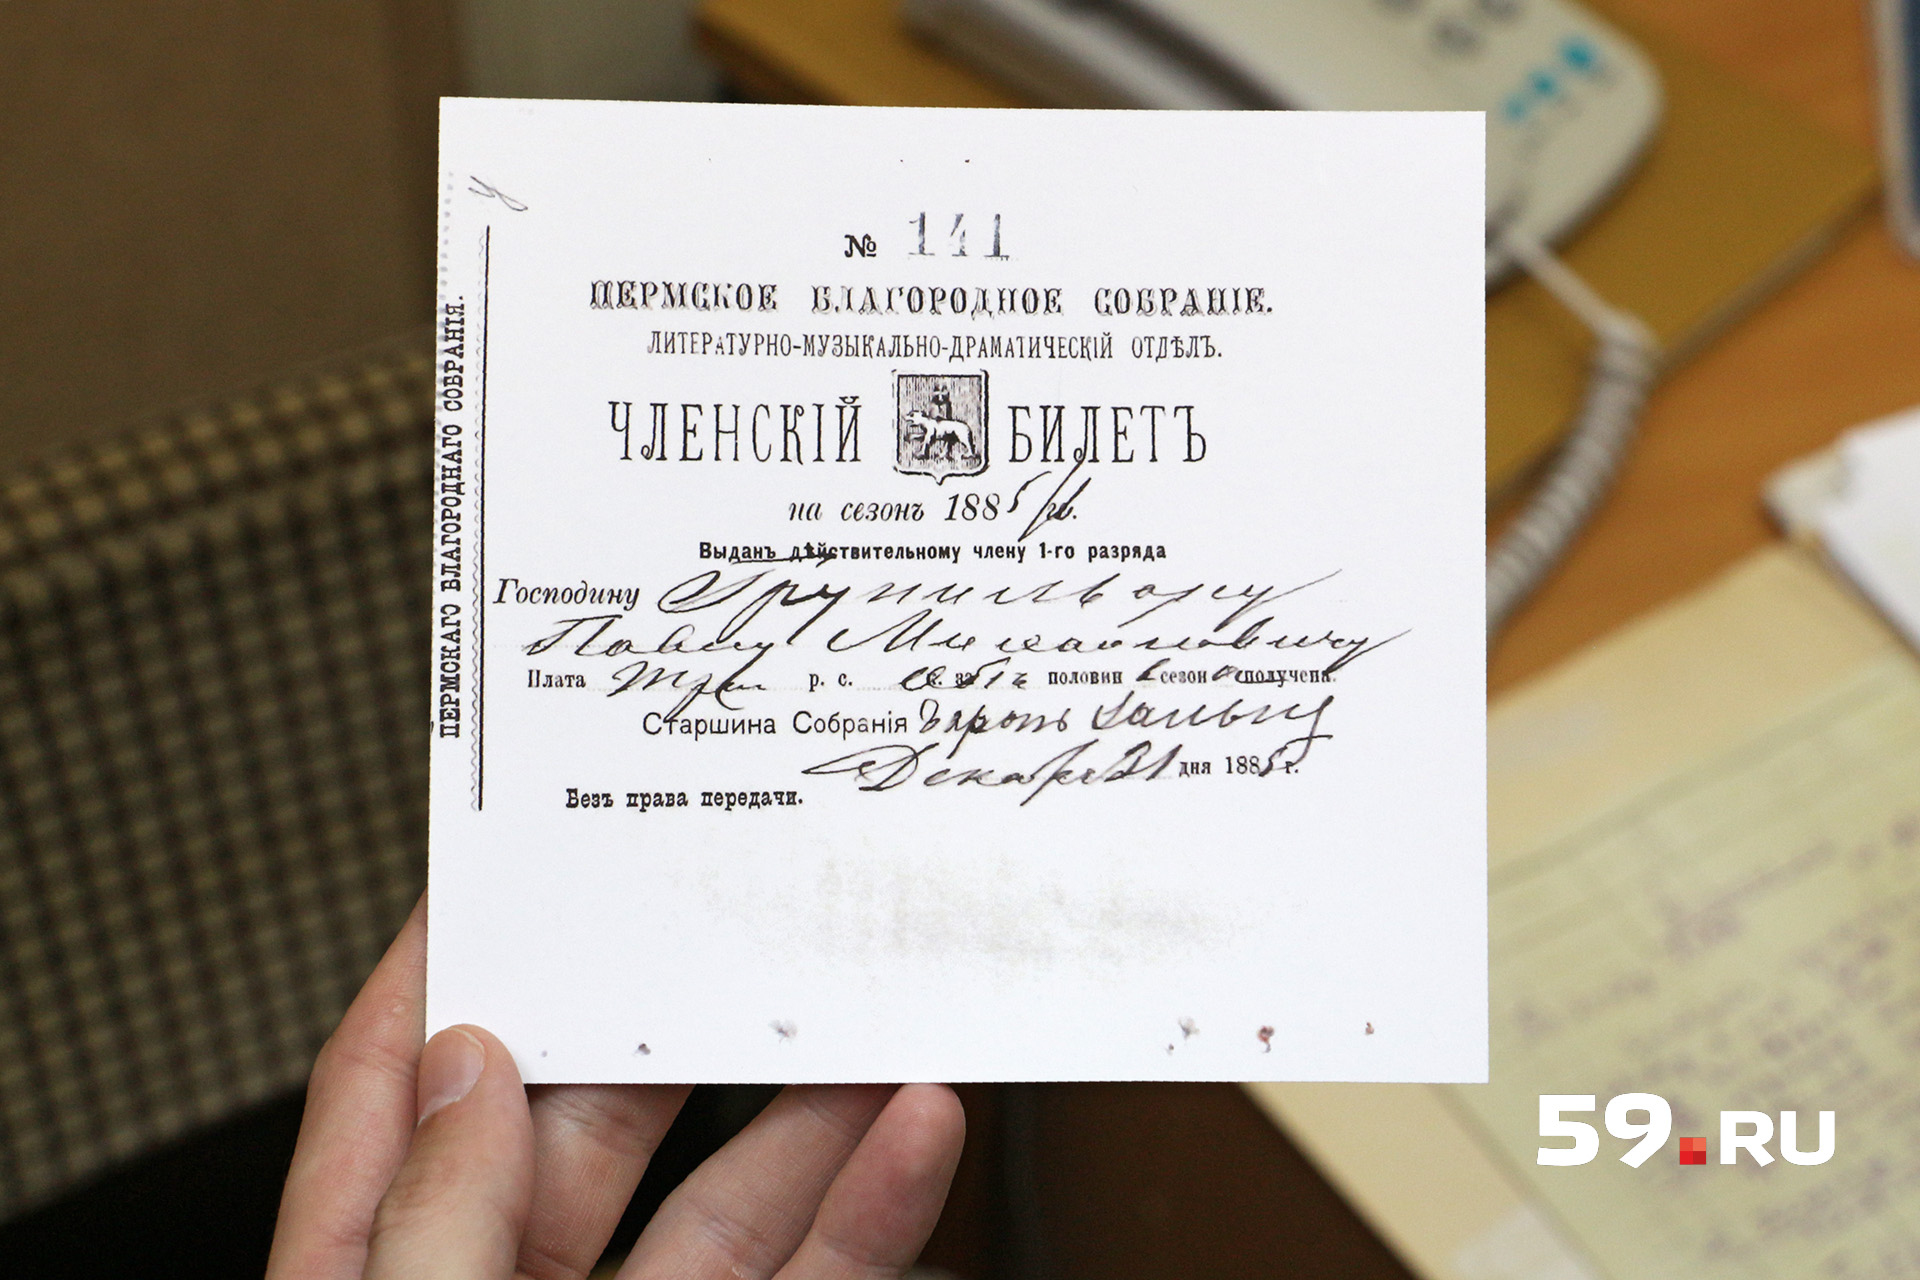 № 141
ПЕРМСКОЕ БЛАГОРОДНОЕ СОБРАНІЕ.
ЛИТЕРАТУРНО-МУЗЫКАЛЬНО-ДРАМАТИЧЕСКІЙ ОТДѢЛЪ.
ЧЛЕНСКІЙ БИЛЕТЪ
на сезонъ 1885/86.
Выданъ дѣйствительному члену 1-го разряда
Господину
Павлу Михайловичу
Плата три р. с. к. за обѣ половин сезона получена.
Старшина Собранія Баронъ
Декабря 21 дня 1885 г.
Безъ права передачи.
ПЕРМСКАГО БЛАГОРОДНАГО СОБРАНІЯ.
59.RU